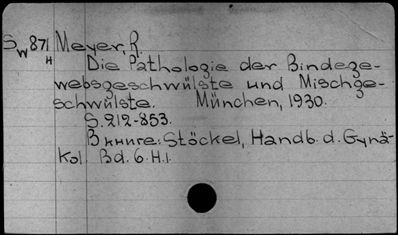 Sw 871 Meyer, R.
H Die Pathologie der Bindege-
websgeschwülste und Mischge-
schwülste. München, 1930.
S. 212-853.
В книге: Stöckel, Handb. d. Gynä-
kol. Bd. 6. H.1.